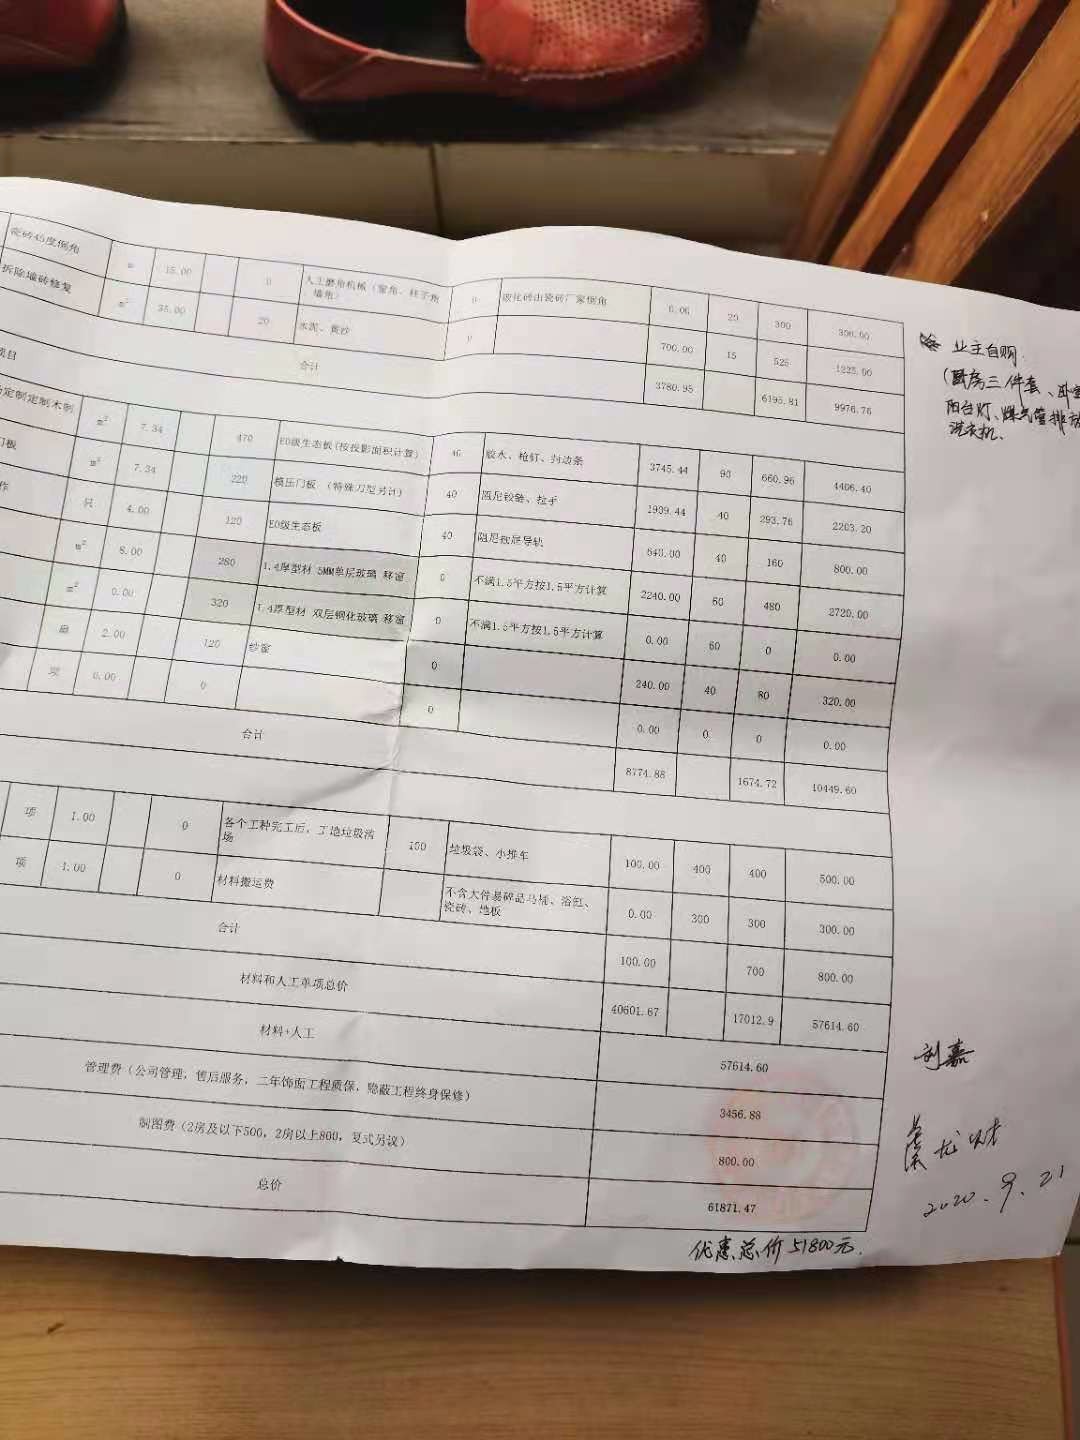 瓷砖45度倒角 m 15.00 0 人工磨角机械（窗角、柱子角、墙角） 0 玻化砖由瓷砖厂家倒角 0.00 20 300 300.00
拆除墙砖修复 m² 35.00 20 水泥、黄沙 0 700.00 15 525 1225.00
合计 3780.95 6195.81 9976.76
项目
定制定制木制 m² 7.34 470 E0级生态板(按投影面积计算) 40 胶水、枪钉、封边条 3745.44 90 660.96 4406.40
门板 m² 7.34 220 模压门板 （特殊刀型另计） 40 阻尼铰链、拉手 1909.44 40 293.76 2203.20
作 只 4.00 120 E0级生态板 40 阻尼 导轨 640.00 40 160 800.00
m² 8.00 280 1.4厚型材 5MM单层玻璃 移窗 0 不满1.5平方按1.5平方计算 2240.00 60 480 2720.00
m² 0.00 320 1.4厚型材 双层钢化玻璃 移窗 0 不满1.5平方按1.5平方计算 0.00 60 0 0.00
扇 2.00 120 纱窗 0 240.00 40 80 320.00
项 0.00 0 0 0.00 0 0 0.00
合计 8774.88 1674.72 10449.60
项 1.00 0 各个工种完工后，工地垃圾清场 100 垃圾袋、小推车 100.00 400 400 500.00
项 1.00 0 材料搬运费 不含大件易碎品马桶、浴缸、瓷砖、地板 0.00 300 300 300.00
合计 100.00 700 800.00
材料和人工单项总价 40601.67 17012.9 57614.60
材料+人工 57614.60
管理费（公司管理，售后服务，二年饰面工程质保，隐蔽工程终身保修） 3456.88
制图费（2房及以下500，2房以上800，复式另议） 800.00
总价 61871.47
优惠总价51800元.
业主自购:
(厨房三件套、卧室
阳台灯、煤气管排
洗衣机.
刘嘉
龙
2020.9.21